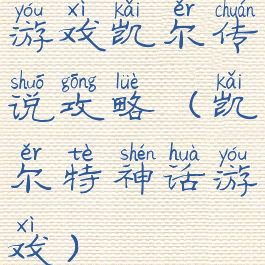 yóu xì kǎi ěr chuán
游戏凯尔传
shuō gōng lüè kǎi
说攻略（凯
ěr tè shén huà yóu
尔特神话游
xì
戏）